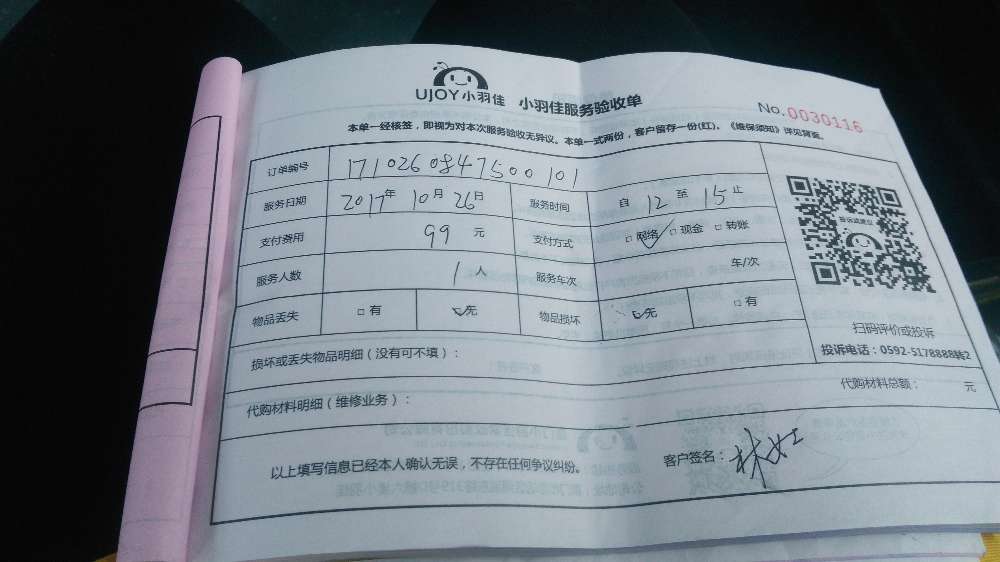 UJOY小羽佳 小羽佳服务验收单
No.0030116
本单一经核签，即视为对本次服务验收无异议。本单一式两份，客户留存一份(红)。《维保须知》详见背面。
订单编号 171026084750 0101
服务日期 2017年 10月 26日 服务时间 自 12 至 15 止
支付费用 99 元 支付方式 □网络 □现金 □转账
服务人数 1 人 服务车次 车/次
物品丢失 □有 □无 物品损坏 □无 □有
扫码评价或投诉
投诉电话：0592-5178888转2
损坏或丢失物品明细（没有可不填）：
代购材料明细（维修业务）： 代购材料总额： 元
以上填写信息已经本人确认无误，不存在任何争议纠纷。 客户签名：林女士